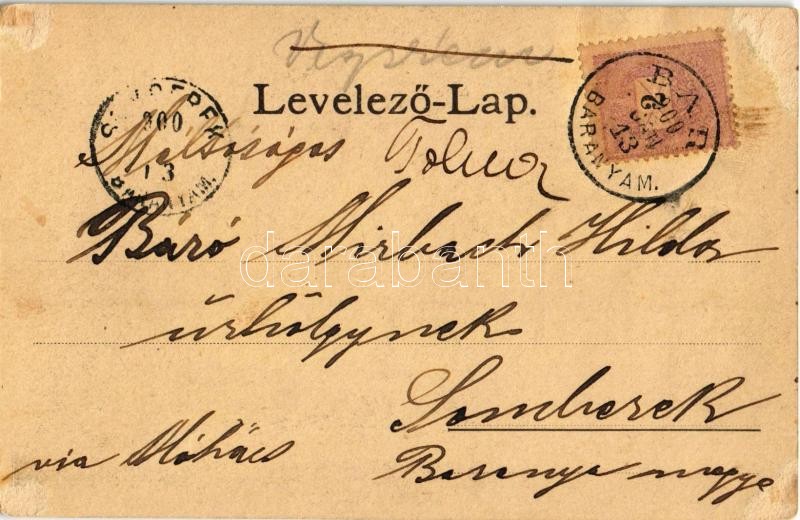 Levelező-Lap.
BAR
BARANYAM.
900
13
900
BARANYAM.
Méltóságos Tolna
Báró Mirbach Hilda
úrhölgynek
Somberek
via Mohács
Baranya megye
darabanth